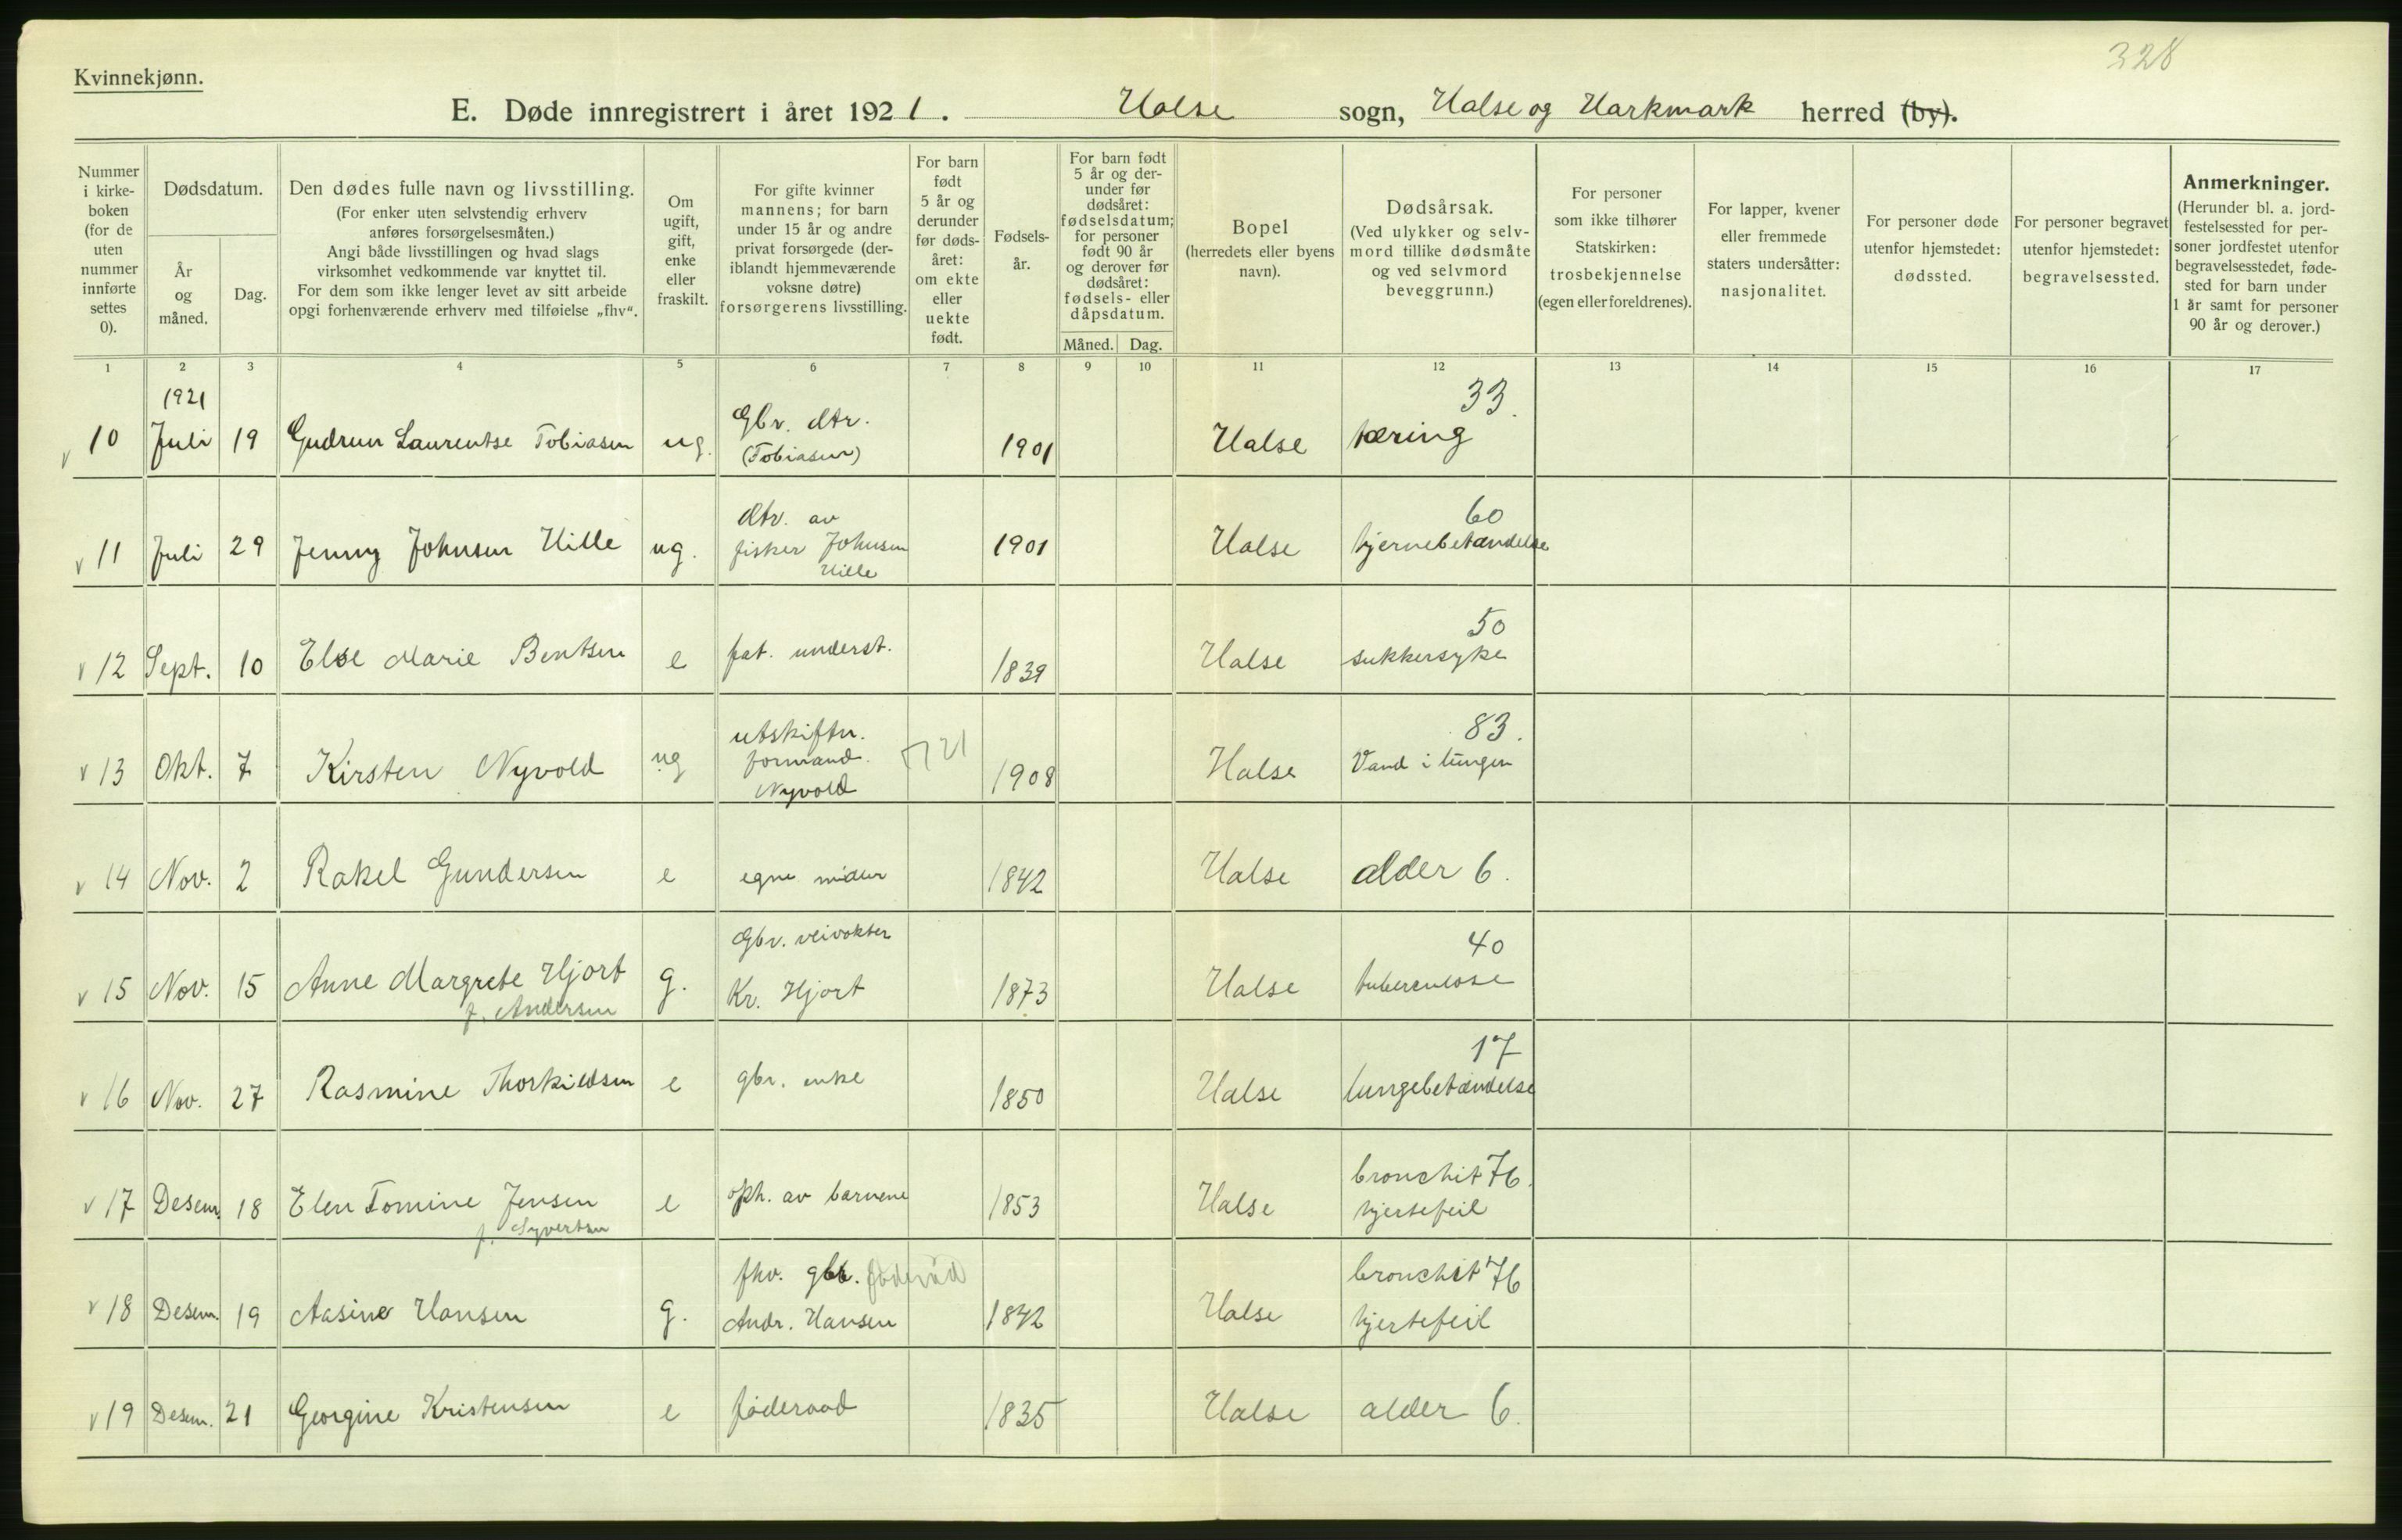 328
Kvinnekjønn.
E. Døde innregistrert i året 1921. Halse sogn, Halse og Harkmark herred (by).
Nummer i kirke- boken (for de uten nummer innførte settes 0).
Dødsdatum.
År og måned.
Dag.
Den dødes fulle navn og livsstilling.
(For enker uten selvstendig erhverv
anføres forsørgelsesmåten.)
Angi både livsstillingen og hvad slags
virksomhet vedkommende var knyttet til.
For dem som ikke lenger levet av sitt arbeide
opgi forhenværende erhverv med tilføielse „fhv“.
Om ugift, gift, enke eller fraskilt.
For gifte kvinner
mannens; for barn
under 15 år og andre
privat forsørgede (der-
iblandt hjemmeværende
voksne døtre)
forsørgerens livsstilling.
For barn født 5 år og derunder før døds- året: om ekte eller uekte født.
Fødsels- år.
For barn født
5 år og der-
under før
dødsåret:
fødselsdatum;
for personer
født 90 år
og derover før
dødsåret:
fødsels- eller
dåpsdatum.
Måned. Dag.
Bopel
(herredets eller byens
navn).
Dødsårsak.
(Ved ulykker og selv-
mord tillike dødsmåte
og ved selvmord
beveggrunn.)
For personer
som ikke tilhører
Statskirken:
trosbekjennelse
(egen eller foreldrenes).
For lapper, kvener
eller fremmede
staters undersåtter:
nasjonalitet.
For personer døde
utenfor hjemstedet:
dødssted.
For personer begravet
utenfor hjemstedet:
begravelsessted.
Anmerkninger.
(Herunder bl. a. jord-
festelsessted for per-
soner jordfestet utenfor
begravelsesstedet, føde-
sted for barn under
1 år samt for personer
90 år og derover.)
1 2 3 4 5 6 7 8 9 10 11 12 13 14 15 16 17
1921 33.
v 10 Juli 19 Gudrun Laurentse Tobiasen ug. Gbr. dtr. (Tobiasen) 1901 Halse tæring
60
v 11 Juli 29 Jenny Johnsen Hille ug. dtr. av fisker Johnsen Hille 1901 Halse hjernebetændelse
50
v 12 Sept. 10 Else Marie Bentsen e fat. underst. 1839 Halse sukkersyke
83.
v 13 Okt. 7 Kirsten Nyvold ug utskiftn. formand. Nyvold 1908 Halse Vand i lungen
v 14 Nov. 2 Rakel Gundersen e egne midler 1842 Halse alder 6.
40
v 15 Nov. 15 Anne Margrete Hjort f. Andersen g. Gbr. veivokter Kr. Hjort 1873 Halse tuberculose
17
v 16 Nov. 27 Rasmine Thorkildsen e gbr. enke 1850 Halse lungebetændelse
v 17 Desem. 18 Elen Tomine Jensen f. Syvertsen e oph. av barnene 1853 Halse bronchit 76. hjertefeil
v 18 Desem. 19 Aasine Hansen g. fhv. gbr. føderåd Andr. Hansen 1842 Halse bronchit 76 hjertefeil
v 19 Desem. 21 Georgine Kristensen e føderaad 1835 Halse alder 6.